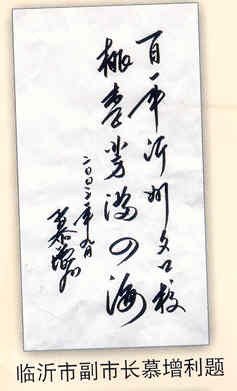 百年沂州文口校
桃李芳满四海
二〇〇二年九月
慕增利
临沂市副市长慕增利题